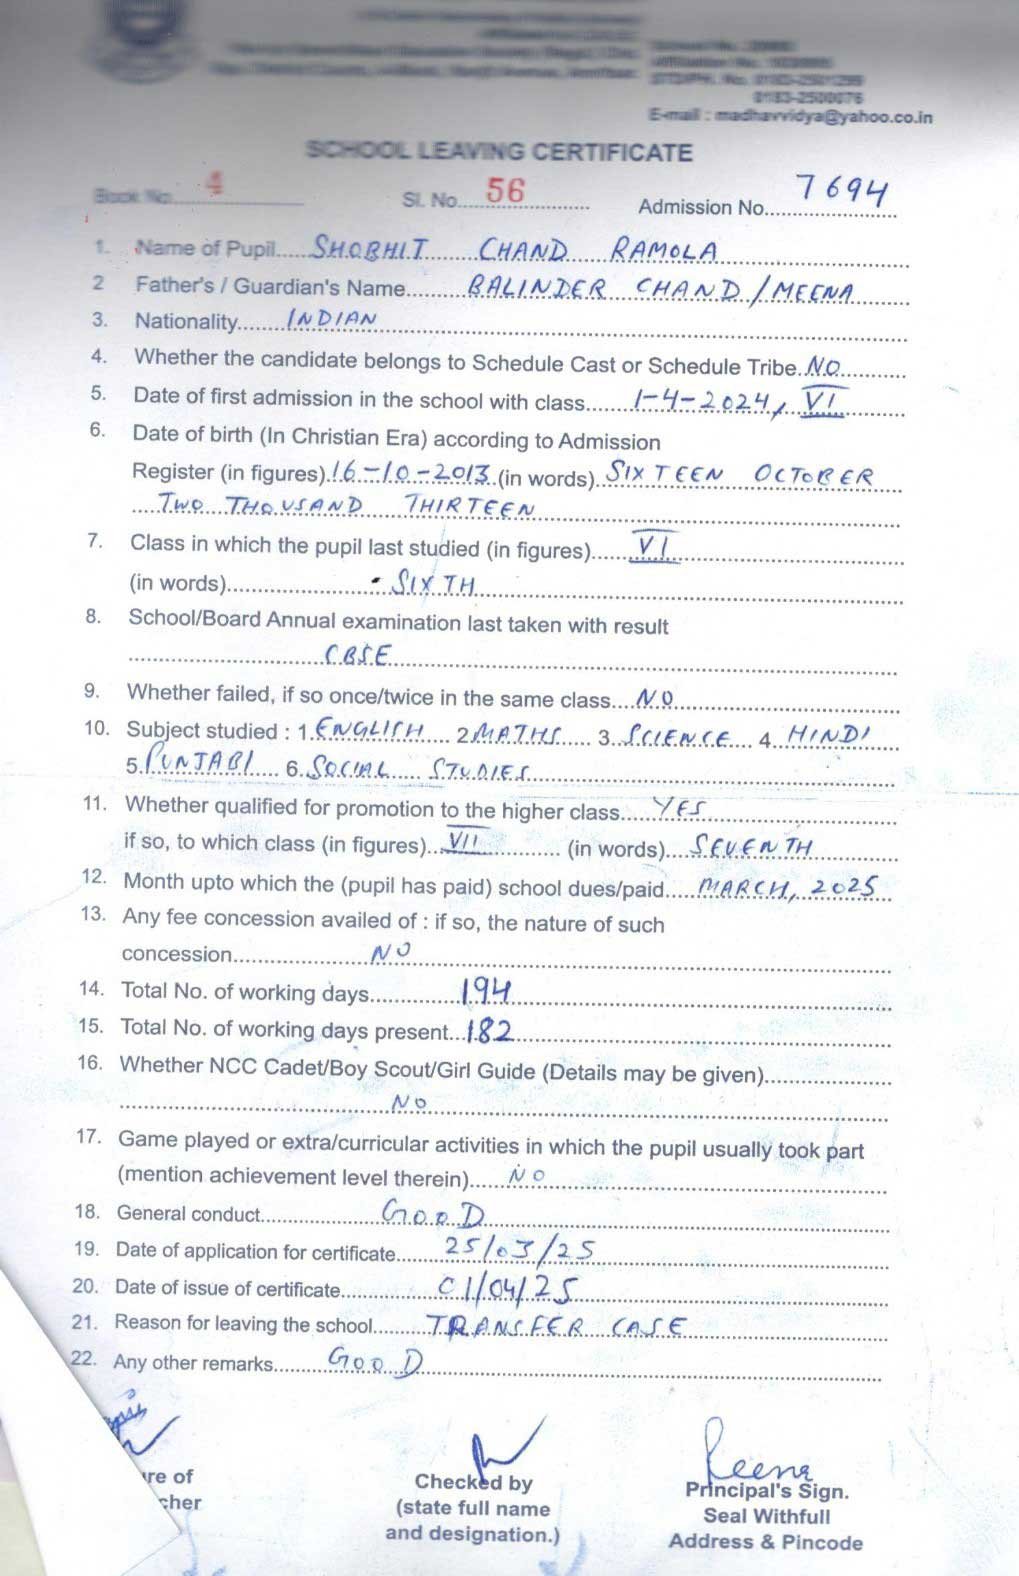 0183-2500076
E-mail : madhavvidya@yahoo.co.in
SCHOOL LEAVING CERTIFICATE
Book No. 4 Sl. No. 56 Admission No. 7694
1. Name of Pupil SHOBHIT CHAND RAMOLA
2 Father's / Guardian's Name BALINDER CHAND / MEENA
3. Nationality INDIAN
4. Whether the candidate belongs to Schedule Cast or Schedule Tribe. NO
5. Date of first admission in the school with class 1-4-2024, VI
6. Date of birth (In Christian Era) according to Admission
Register (in figures) 16-10-2013 (in words) SIXTEEN OCTOBER
TWO THOUSAND THIRTEEN
7. Class in which the pupil last studied (in figures) VI
(in words) SIXTH
8. School/Board Annual examination last taken with result
CBSE
9. Whether failed, if so once/twice in the same class NO
10. Subject studied : 1. ENGLISH 2 MATHS 3. SCIENCE 4. HINDI
5. PUNJABI 6. SOCIAL STUDIES
11. Whether qualified for promotion to the higher class YES
if so, to which class (in figures) VII (in words) SEVENTH
12. Month upto which the (pupil has paid) school dues/paid MARCH, 2025
13. Any fee concession availed of : if so, the nature of such
concession NO
14. Total No. of working days 194
15. Total No. of working days present 182
16. Whether NCC Cadet/Boy Scout/Girl Guide (Details may be given)
NO
17. Game played or extra/curricular activities in which the pupil usually took part
(mention achievement level therein) NO
18. General conduct GOOD
19. Date of application for certificate 25/03/25
20. Date of issue of certificate 01/04/25
21. Reason for leaving the school TRANSFER CASE
22. Any other remarks GOOD
Reena
re of Checked by Principal's Sign.
cher (state full name Seal Withfull
and designation.) Address & Pincode